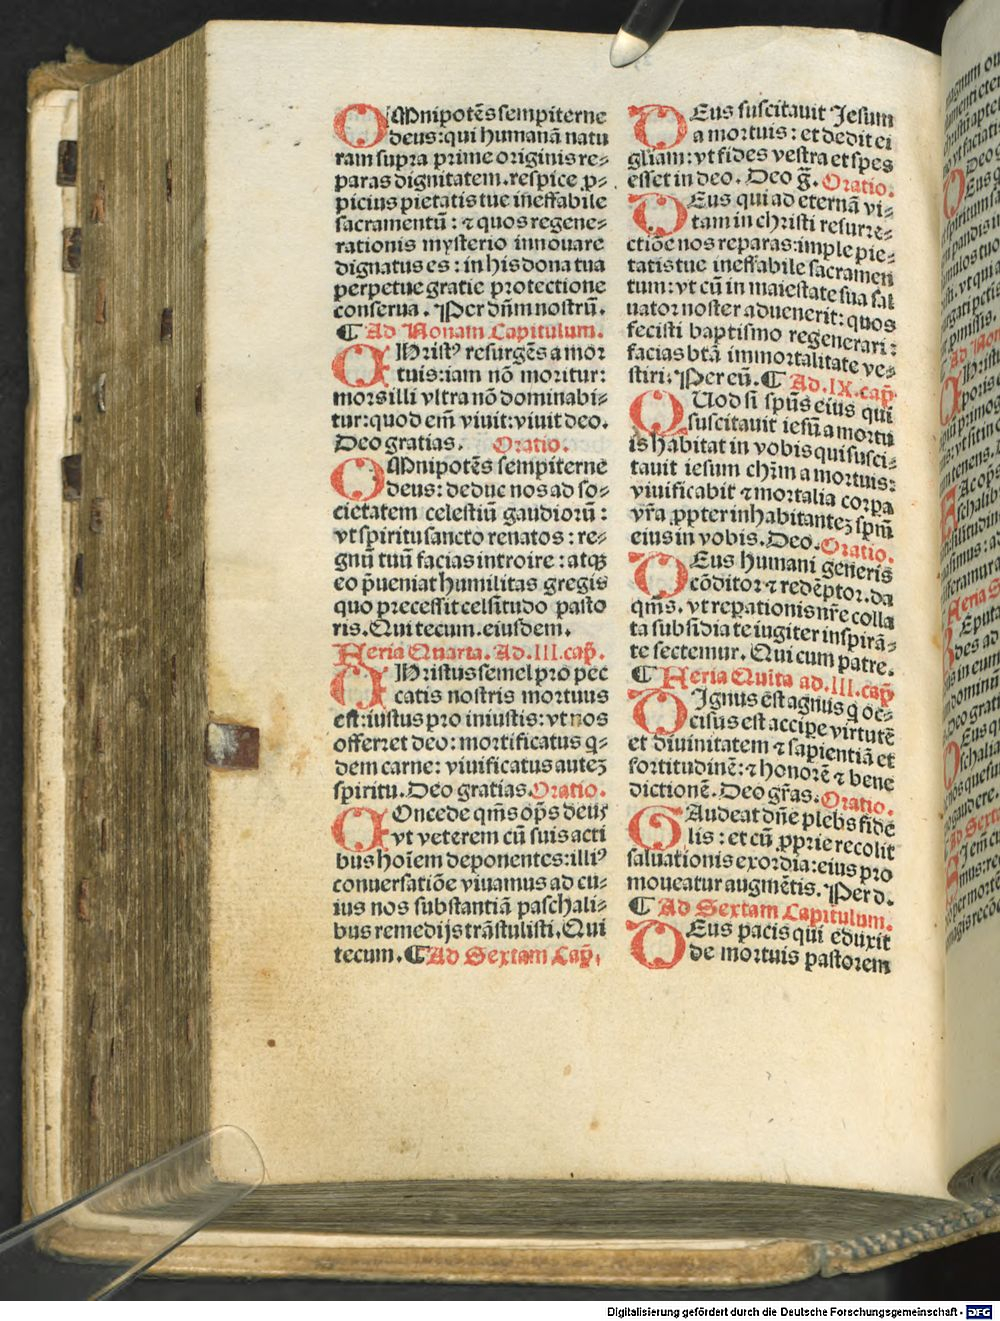 OMnipotēs sempiterne
deus: qui humanā natu
ram supra prime originis re⸗
paras dignitatem. respice ꝓ⸗
picius pietatis tue ineffabile
sacramentū: ⁊ quos regene⸗
rationis mysterio innouare
dignatus es: in his dona tua
perpetue gratie protectione
conserua. Per dn̄m nostrū.
¶ Ad Nonam Capitulum.
CHristꝰ resurgēs a mor
tuis: iam nō moritur:
mors illi vltra nō dominabi⸗
tur: quod em̄ viuit: viuit deo.
Deo gratias. Oratio.
OMnipotēs sempiterne
deus: deduc nos ad so⸗
cietatem celestiū gaudiorū:
vt spiritu sancto renatos: re⸗
gnū tuū facias introire: atqꝫ
eo p̄ueniat humilitas gregis
quo precessit celsitudo pasto
ris. Qui tecum. eiusdem.
Feria Quarta. Ad. III. cap̄.
CHristus semel pro pec
catis nostris mortuus
est: iustus pro iniustis: vt nos
offerret deo: mortificatus q⸗
dem carne: viuificatus autez
spiritu. Deo gratias. Oratio.
COncede qm̄s op̄s deus
vt veterem cū suis acti
bus hoīem deponentes: illiꝰ
conuersatiōe viuamus ad cu⸗
ius nos substantiā paschali⸗
bus remedijs trāstulisti. Qui
tecum. ¶ Ad Sextam Cap̄.
DEus suscitauit Jesum
a mortuis: et dedit ei
gliam: vt fides vestra et spes
esset in deo. Deo ḡ. Oratio.
DEus qui ad eternā vi⸗
tam in christi resurre⸗
ctiōe nos reparas: imple pie⸗
tatis tue ineffabile sacramen
tum: vt cū in maiestate sua sal
uator noster aduenerit: quos
fecisti baptismo regenerari:
facias btā immortalitate ve⸗
stiri. Per eū. ¶ Ad. IX. cap̄.
QUod si spūs eius qui
suscitauit iesū a mortu
is habitat in vobis qui susci⸗
tauit iesum chr̄m a mortuis:
viuificabit ⁊ mortalia corpa
vr̄a ꝓpter inhabitantez spm̄
eius in vobis. Deo. Oratio.
DEus humani generis
cōditor ⁊ redēptor. da
qm̄s. vt repationis nr̄e colla
ta subsidia te iugiter inspirā⸗
te sectemur. Qui cum patre.
¶ Feria Quīta ad. III. cap̄
DIgnus est agnus q̄ oc⸗
cisus est accipe virtutē
et diuinitatem ⁊ sapientiā et
fortitudinē: ⁊ honorē ⁊ bene
dictionē. Deo gr̄as. Oratio.
GAudeat dn̄e plebs fide
lis: et cū ꝓprie recolit
saluationis exordia: eius pro
moueatur augmētis. Per d.
¶ Ad Sextam Capitulum.
DEus pacis qui eduxit
de mortuis pastorem
Digitalisierung gefördert durch die Deutsche Forschungsgemeinschaft - DFG